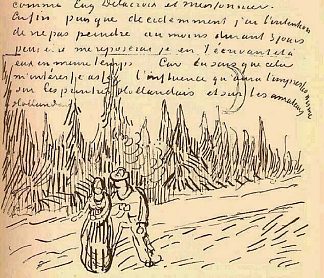 comme Eug Delacroix et Meissonier.
Enfin puisque decidemment j'ai l'intention
de ne pas peindre au moins durant 3 jours
peut-être me reposerai je en t'écrivant à toi
en meme temps Car tu sais que cela
m'interesse assez l'influence qu'aura l'impressionisme
sur les peintres Hollandais et sur les amateurs
Hollandais